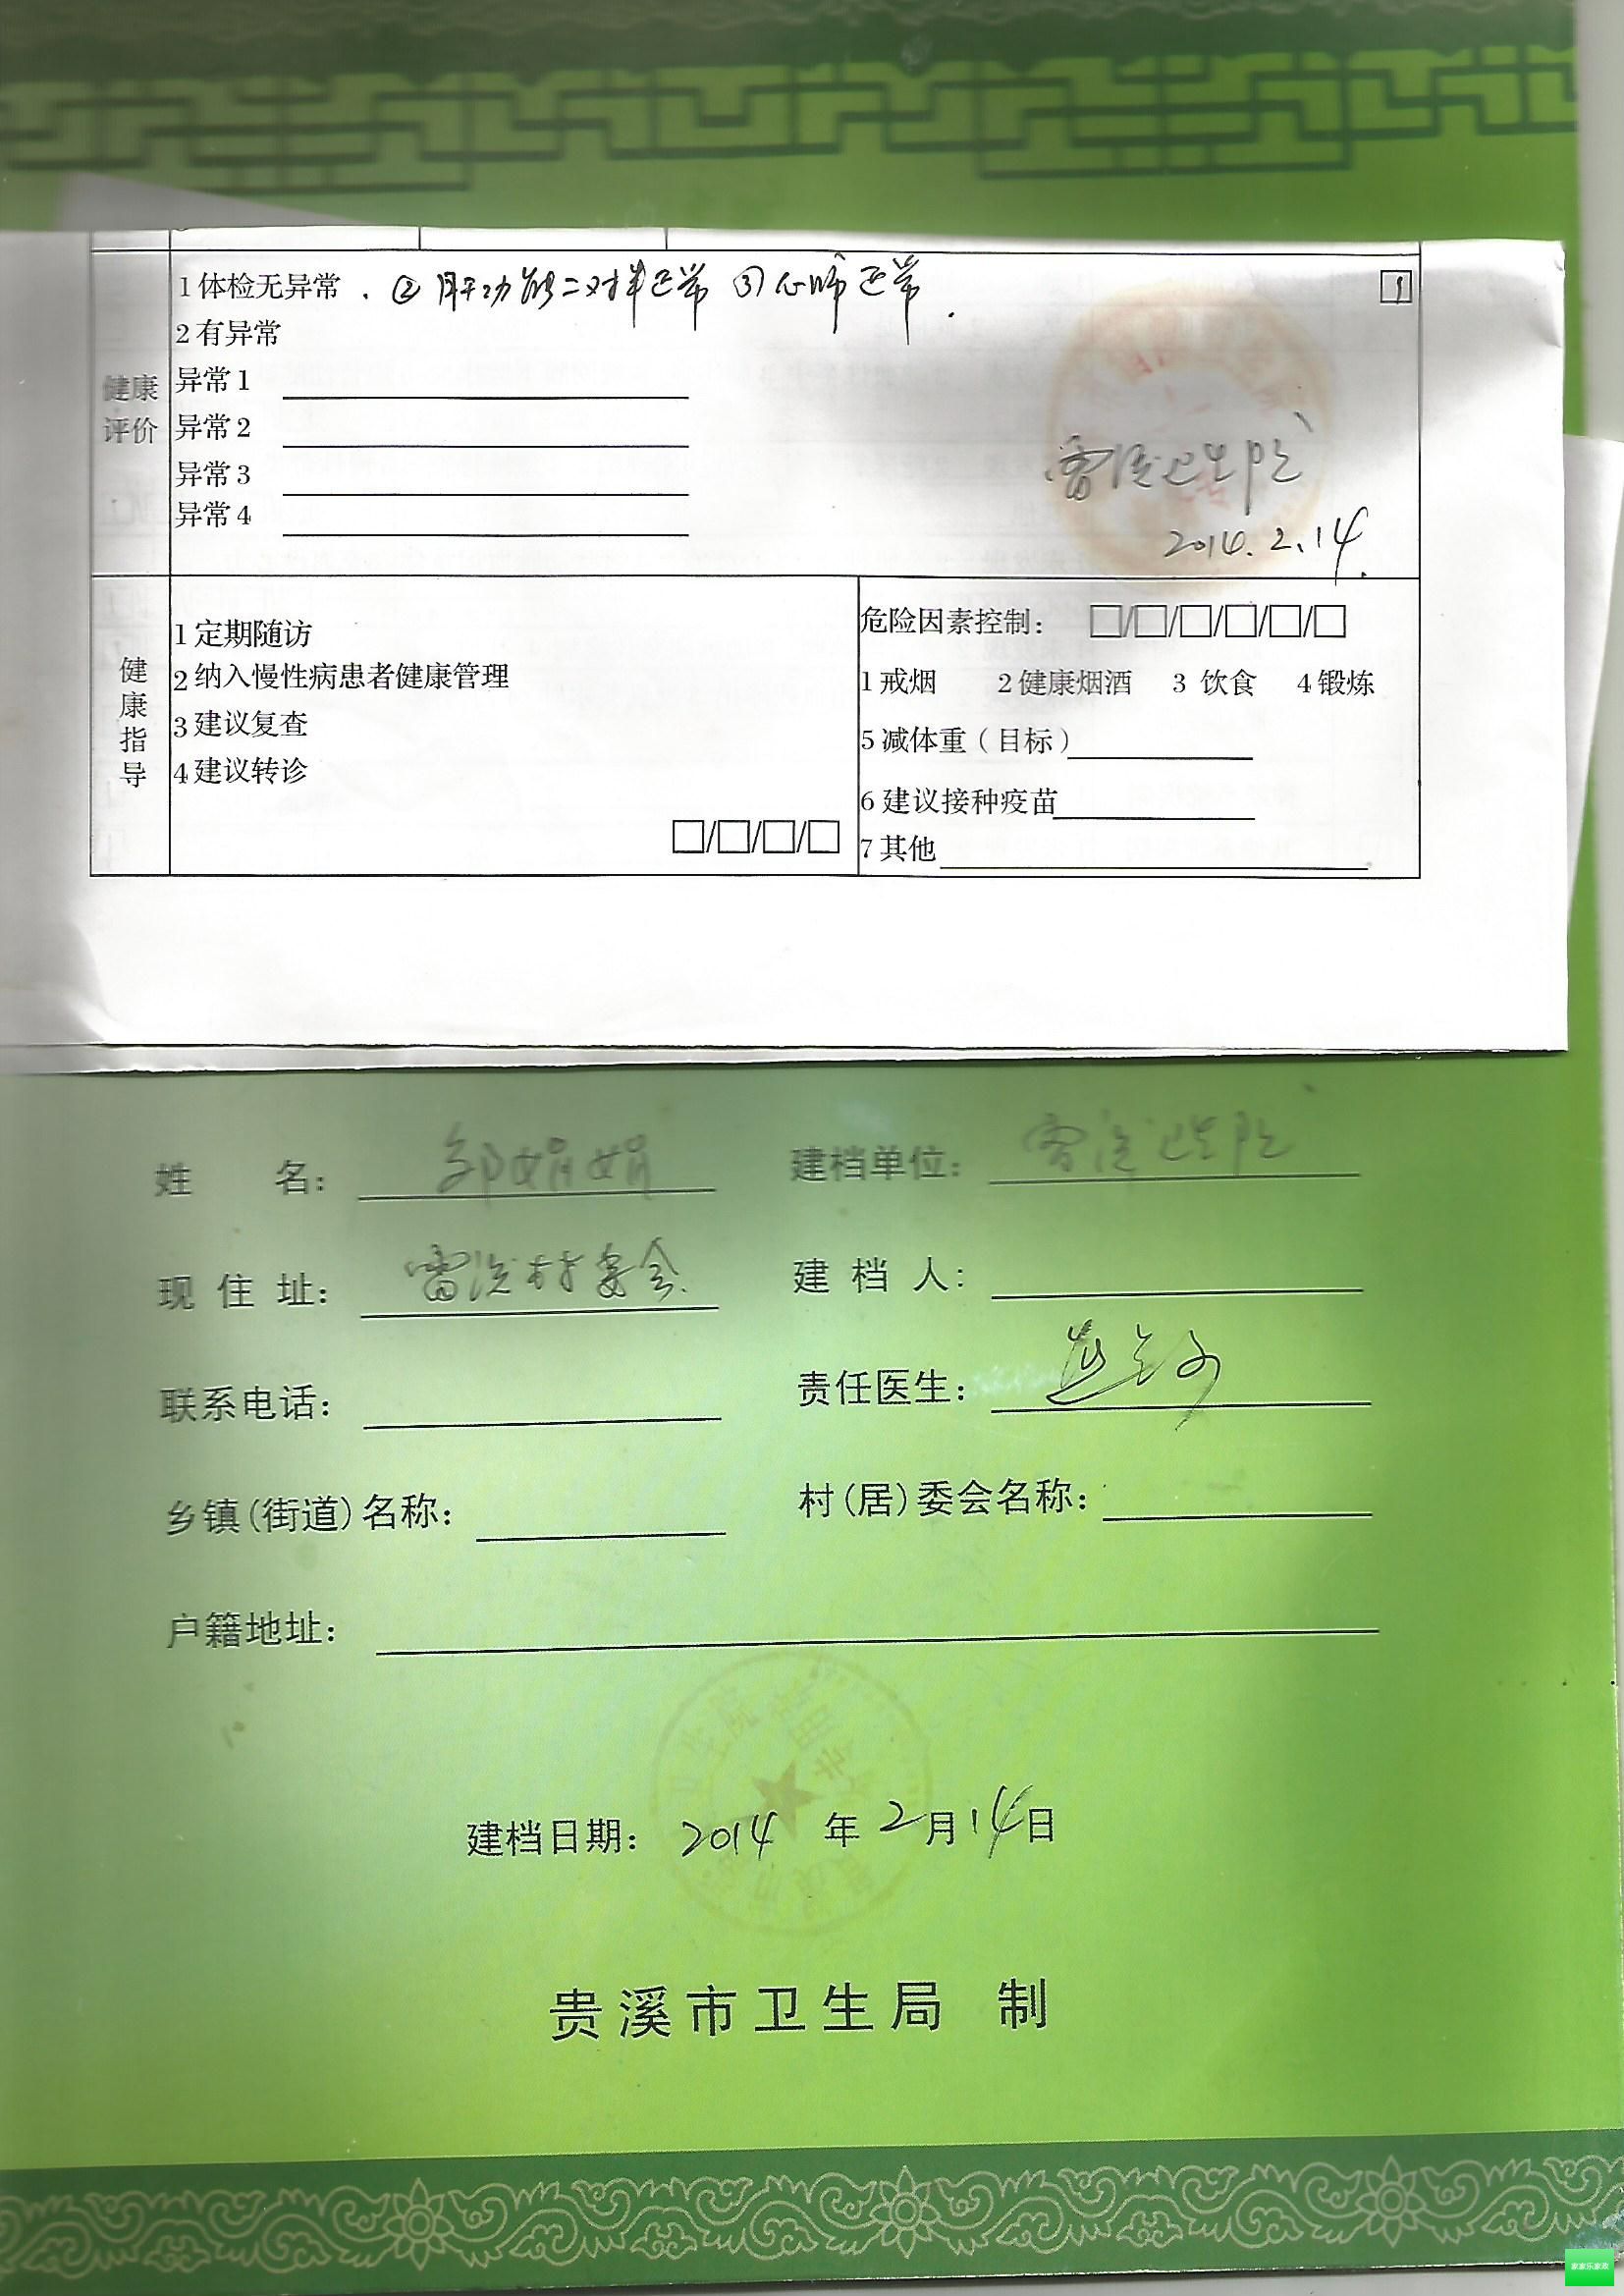 1体检无异常 . ② 肝功能二对半正常 ③ 心肺正常.
1
2有异常
健康评价
异常1
异常2
异常3
异常4
卫生院
2014.2.14.
健康指导
1定期随访
2纳入慢性病患者健康管理
3建议复查
4建议转诊
□/□/□/□
危险因素控制: □/□/□/□/□/□
1戒烟 2健康烟酒 3 饮食 4锻炼
5减体重(目标)
6建议接种疫苗
7其他
姓 名: 邹娟娟 建档单位: 卫生院
现 住 址: 村委会 建 档 人:
联系电话: 责任医生:
乡镇(街道)名称: 村(居)委会名称:
户籍地址:
建档日期: 2014 年 2月14日
贵溪市卫生局 制